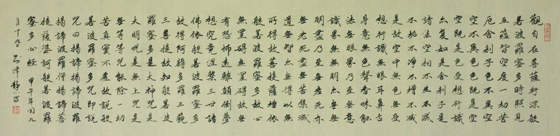 觀自在菩薩行深般
若波羅蜜多時照見
五蘊皆空度一切苦
厄舍利子色不異空
空不異色色即是空
空即是色受想行識
亦復如是舍利子是
諸法空相不生不滅
不垢不淨不增不減
是故空中無色無受
想行識無眼耳鼻舌
身意無色聲香味觸
法無眼界乃至無意
識界無無明亦無無
明盡乃至無老死亦
無老死盡無苦集滅
道無智亦無得以無
所得故菩提薩埵依
般若波羅蜜多故心
無罣礙無罣礙故無
有恐怖遠離顛倒夢
想究竟涅槃三世諸
佛依般若波羅蜜多
故得阿耨多羅三藐
三菩提故知般若波
羅蜜多是大神咒是
大明咒是無上咒是
無等等咒能除一切
苦真實不虛故說般
若波羅蜜多咒即說
咒曰揭諦揭諦波羅
揭諦波羅僧揭諦菩
提薩婆訶般若波羅
蜜多心經 甲午年閏九
月十九 靜書